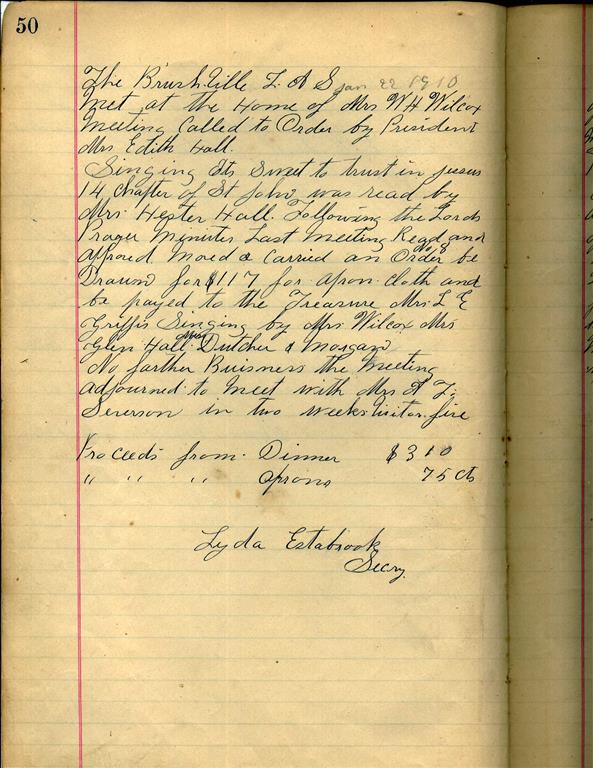 50
The Brushville L. A S Jan 22 1910
Met at the Home of Mrs W H Wilcox
Meeting Called to Order by President
Mrs Edith Hall.
Singing Its Sweet to trust in Jesus
14 Chapter of St John was read by
Mrs. Hester Hall. Following the Lords
Prayer Minutes Last Meeting Read and
approved Moved & Carried an Order No 8 be
Drawn for $1 17 for apron cloth and
be payed to the Treasure Mrs. L E
Griffis Singing by Mrs Wilcox Mrs
Glen Hall Mrs Dutcher & Morgan
No farther Buisness the Meeting
adjourned to Meet with Mrs A L.
Severson in two weeks visitor. five
Proceeds from. Dinner $3 10
" " " Aprons 75 cts
Lyda Estabrook
Secry.